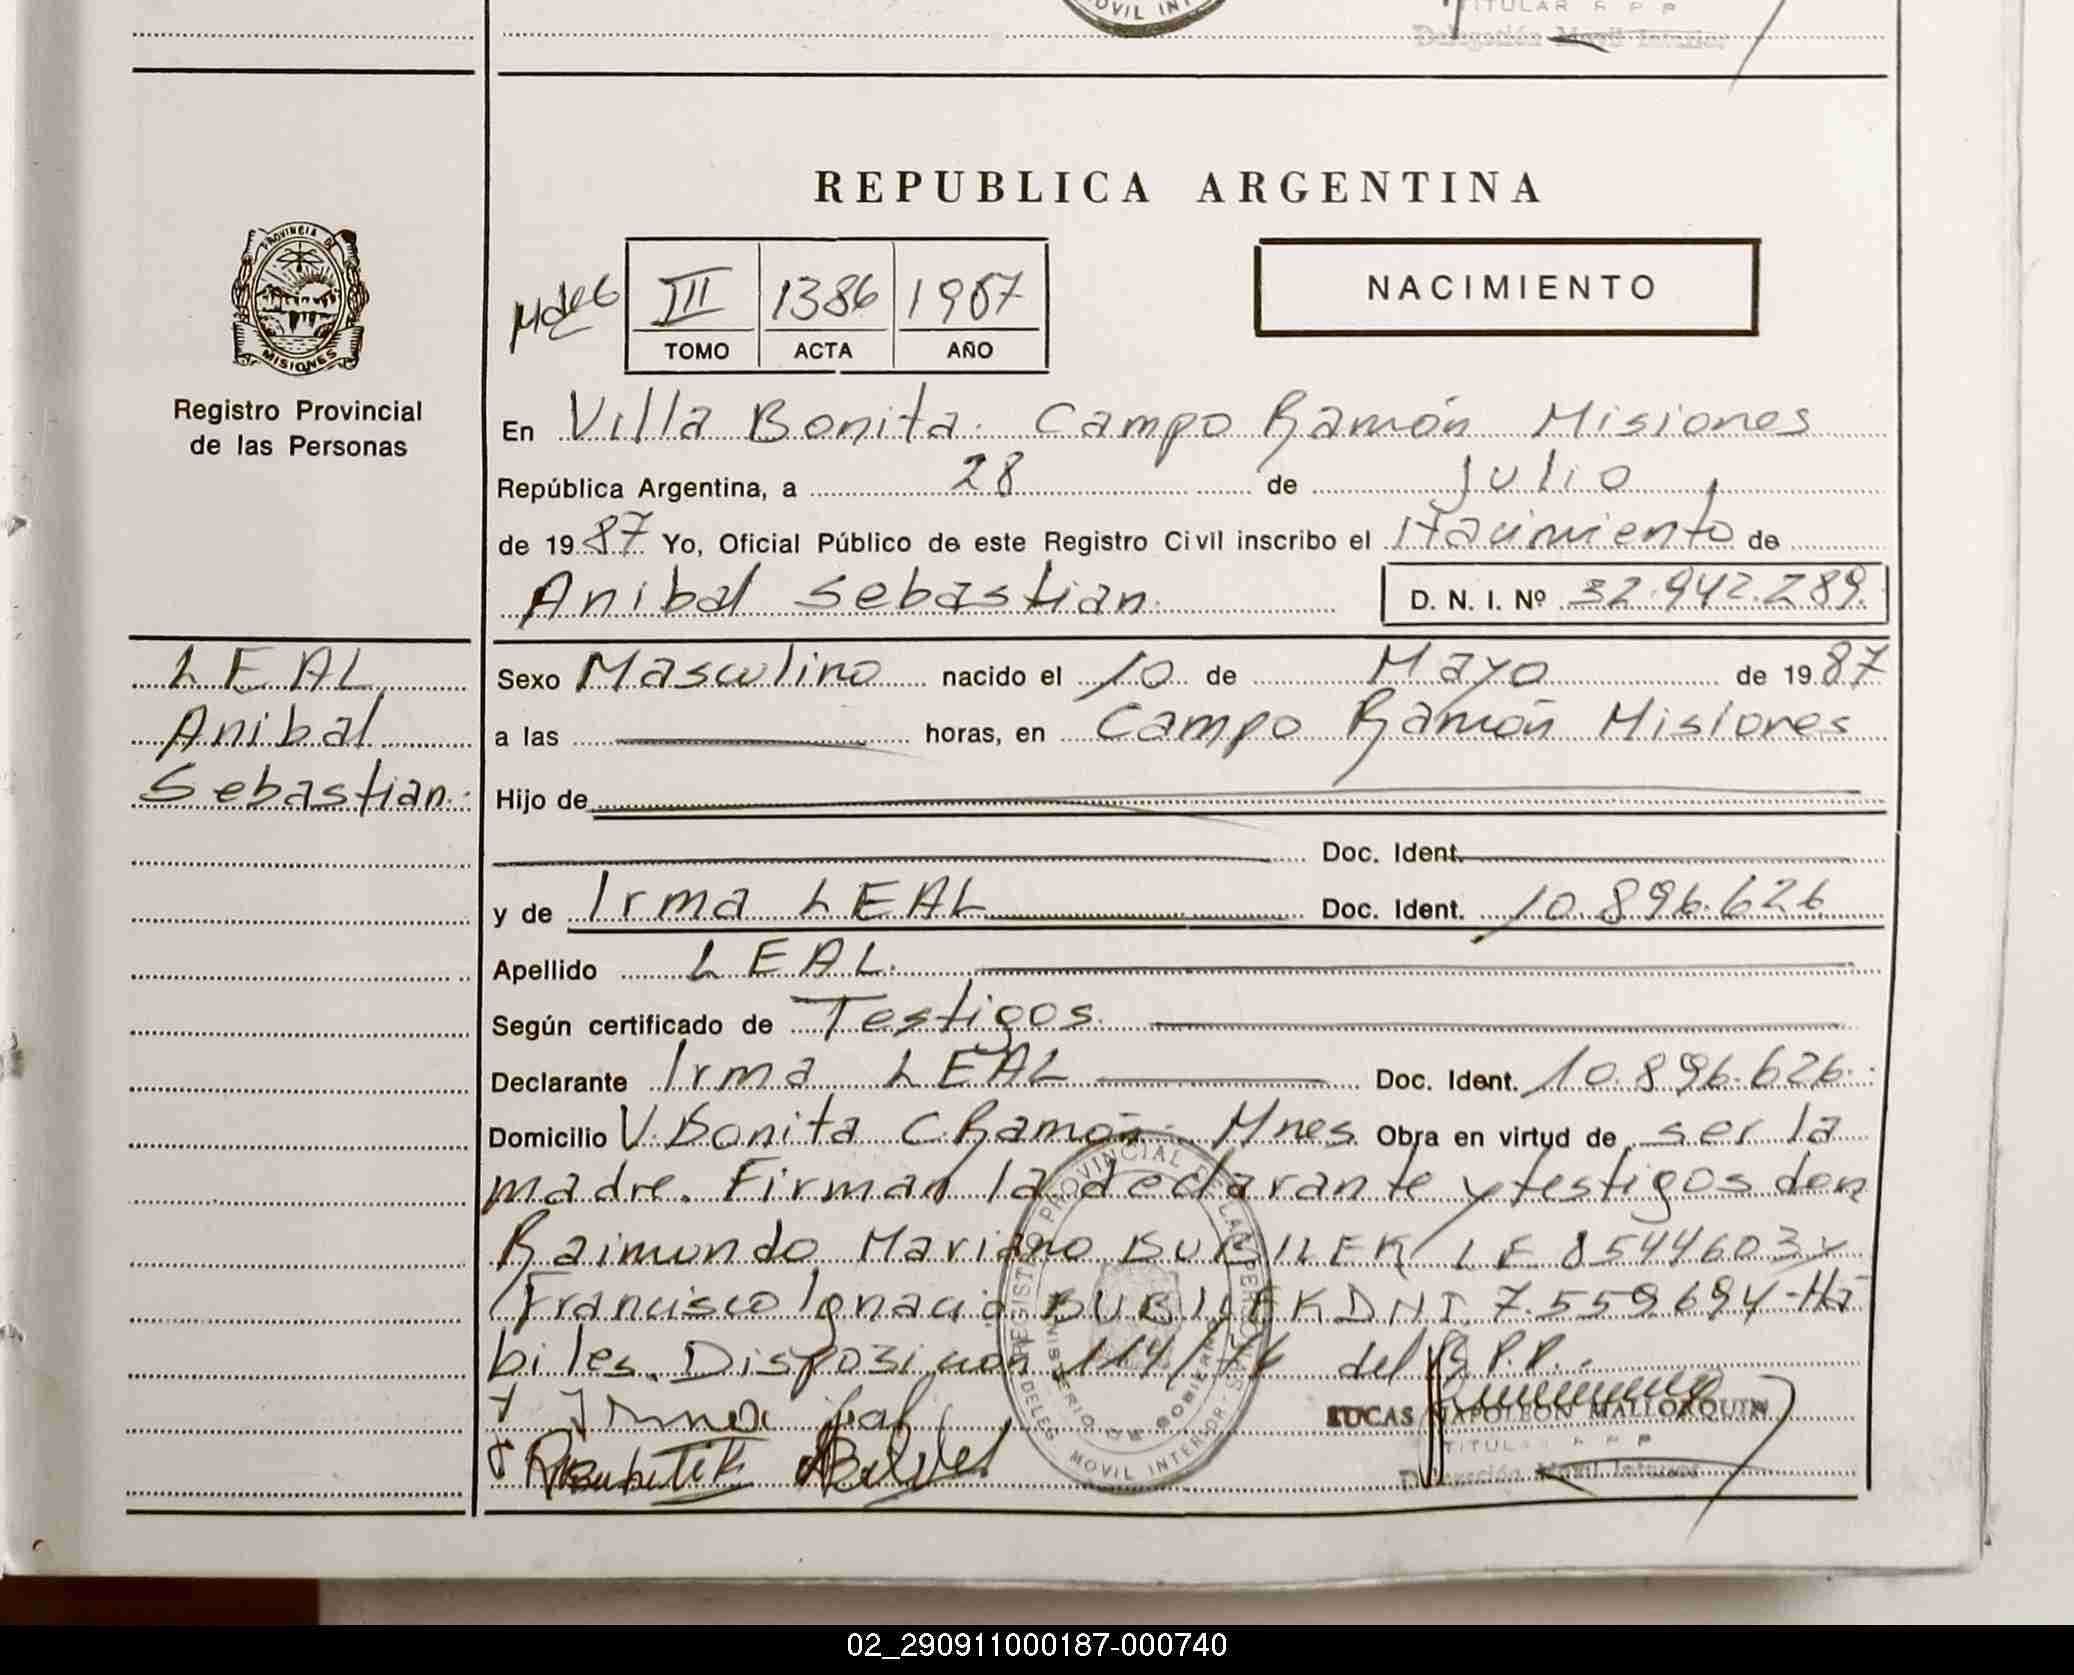 MOVIL INT
TITULAR R P P
Delegación Movil Interior
REPUBLICA ARGENTINA
PROVINCIA DE
MISIONES
Registro Provincial
de las Personas
III 1386 1987
TOMO ACTA AÑO
NACIMIENTO
En Villa Bonita. Campo Ramón Misiones
República Argentina, a 28 de Julio
de 1987 Yo, Oficial Público de este Registro Civil inscribo el Nacimiento de
Anibal Sebastian. D. N. I. Nº 32.942.289.
LEAL
Anibal
Sebastian.
Sexo Masculino nacido el 10 de Mayo de 1987
a las horas, en Campo Ramón Misiones
Hijo de
Doc. Ident.
y de Irma LEAL Doc. Ident. 10.896.626
Apellido LEAL.
Según certificado de Testigos.
Declarante Irma LEAL Doc. Ident. 10.896.626.
Domicilio V. Bonita C. Ramón. Mnes Obra en virtud de ser la
madre. Firman la declarante y testigos don
Raimundo Mariano BUBILEK LE 8544603 y
Francisco Ignacio BUBILEK DNI 7.559694-Há
biles. Disposicion 114/76 del R.P.P.
Irma Leal
REGISTRO PROVINCIAL DE LAS PERSONAS
MINISTERIO DE GOBIERNO
DELEG. MOVIL INTERIOR
LUCAS NAPOLEON MALLORQUIN
TITULAR R P P
Delegación Movil Interior
02_290911000187-000740